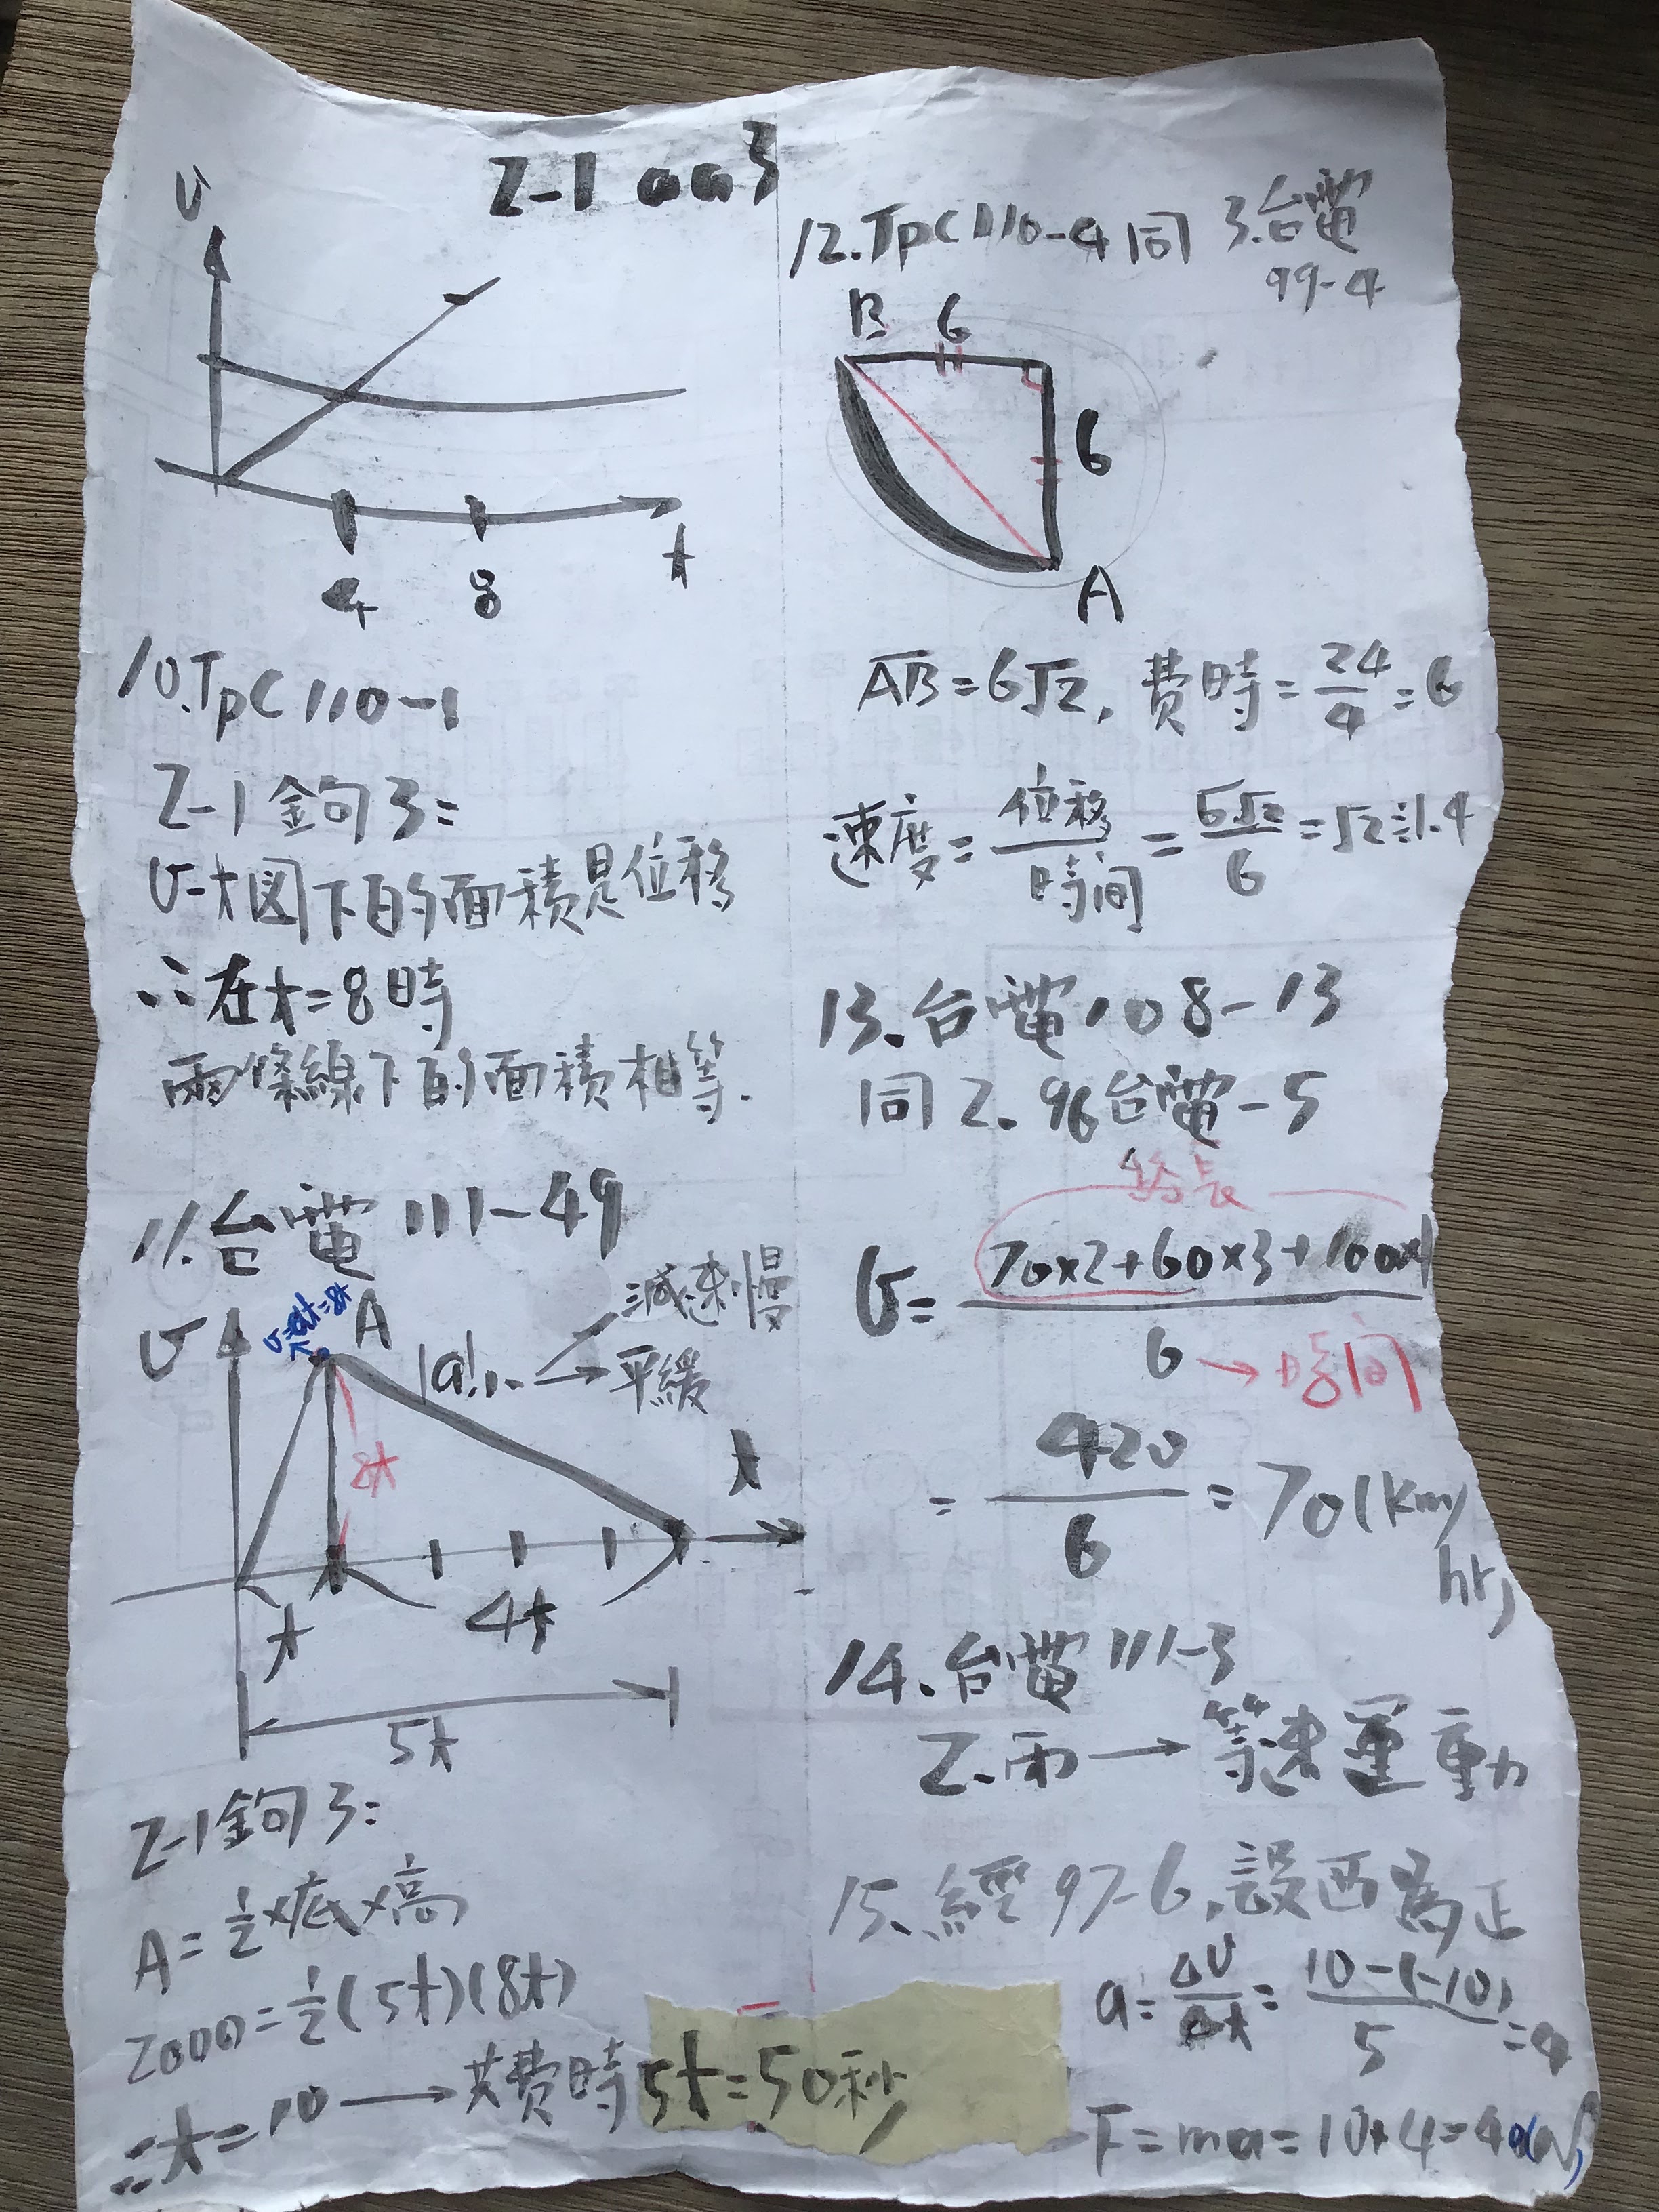 2-1 aa3
v
4
8
t
10.Tpc110-1
2-1鉤3=
v-t図下的面積是位移
∴在t=8時
兩條線下的面積相等.
11.台電111-49
v
A
|a|
減速慢
平緩
8t
t
t
4t
5t
2-1鉤3=
A=½×底×高
2000=½(5t)(8t)
∴t=10→共費時5t=50秒
12.Tpc110-4同 3.台電
99-4
B
6
6
A
AB=6√2, 費時=24/4=6
速度=位移/時间=6√2/6=√2≒1.4
13.台電108-13
同2.96台電-5
路長
v=70×2+60×3+100×1/6→時间
=420/6=70(km/
hr)
14.台電111-3
乙.丙→等速運動
15.經97-6,設西為正
a=ΔV/Δt=10-(-10)/5=4
F=ma=10×4=40(N)